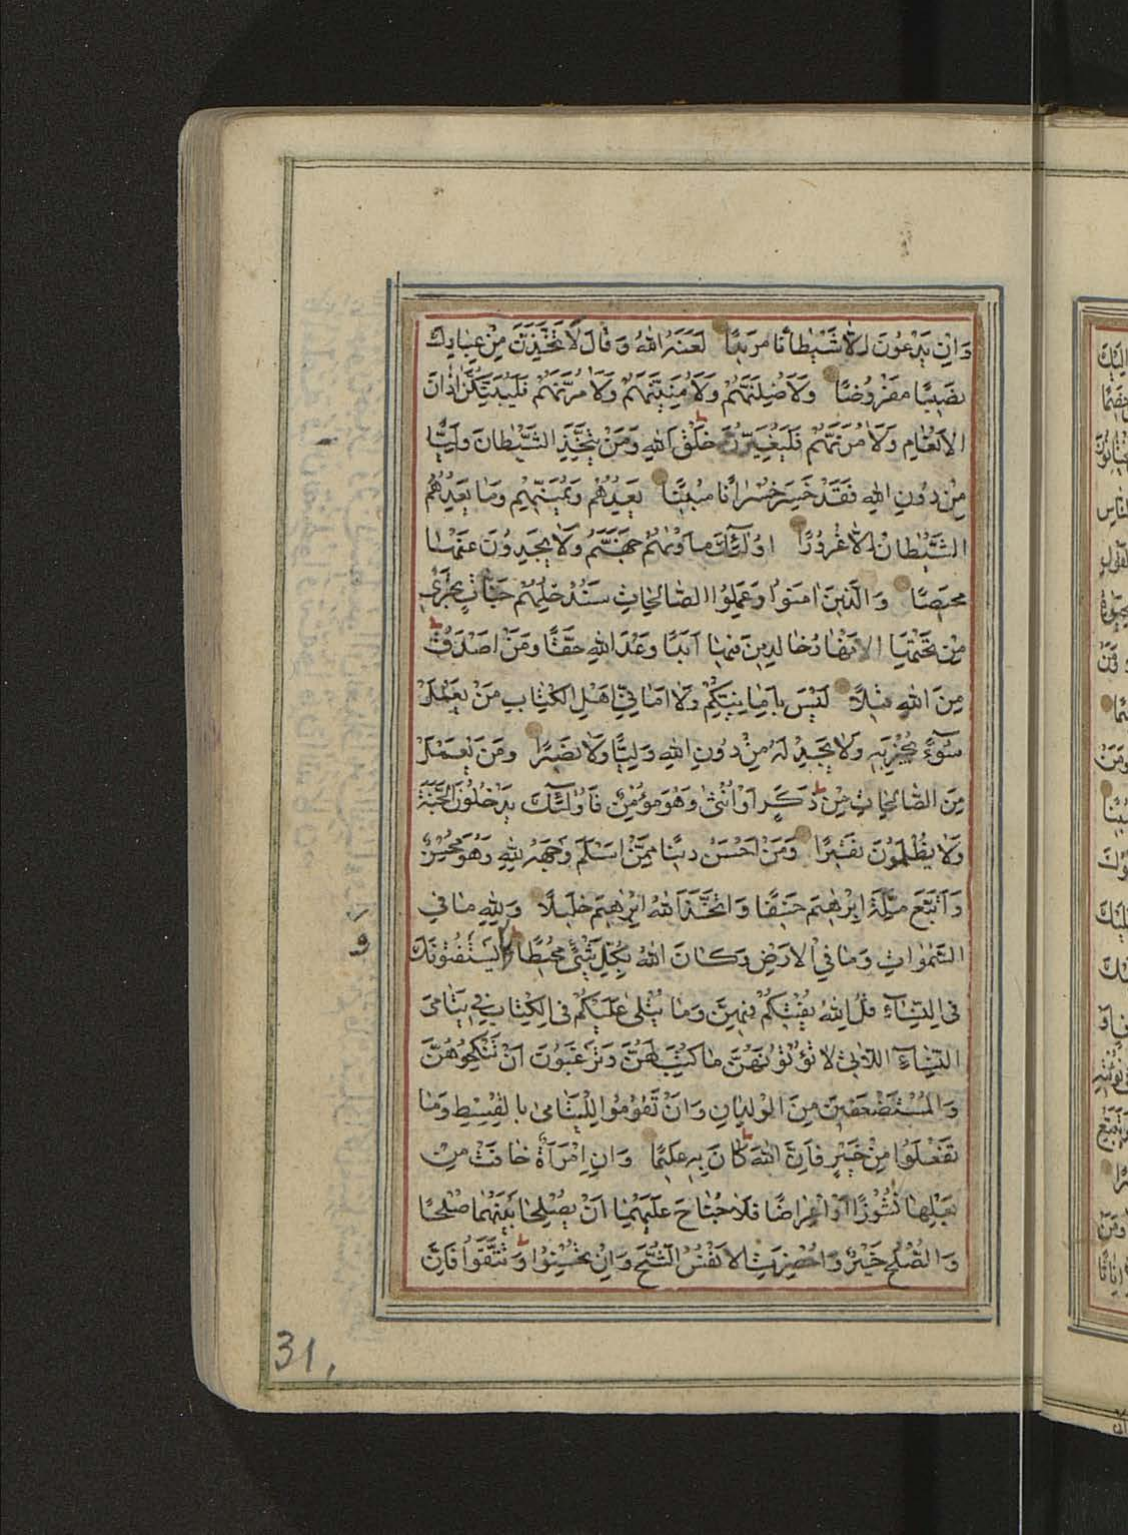 وَاِنْ يَدْعُونَ اِلَّا شَيْطَانًا مَرِيدًا لَعَنَهُ اللهُ وَقَالَ لَاَتَّخِذَنَّ مِنْ عِبَادِكَ
نَصِيبًا مَفْرُوضًا وَلَاُضِلَّنَّهُمْ وَلَاُمَنِّيَنَّهُمْ وَلَاٰمُرَنَّهُمْ فَلَيُبَتِّكُنَّ اٰذَانَ
الْاَنْعَامِ وَلَاٰمُرَنَّهُمْ فَلَيُغَيِّرُنَّ خَلْقَ اللهِ وَمَنْ يَتَّخِذِ الشَّيْطَانَ وَلِيًّا
مِنْ دُونِ اللهِ فَقَدْ خَسِرَ خُسْرَانًا مُبِينًا يَعِدُهُمْ وَيُمَنِّيهِمْ وَمَا يَعِدُهُمُ
الشَّيْطَانُ اِلَّا غُرُورًا اُولٰٓئِكَ مَاْوٰيهُمْ جَهَنَّمُ وَلَا يَجِدُونَ عَنْهَا
مَحِيصًا وَالَّذِينَ اٰمَنُوا وَعَمِلُوا الصَّالِحَاتِ سَنُدْخِلُهُمْ جَنَّاتٍ تَجْرِي
مِنْ تَحْتِهَا الْاَنْهَارُ خَالِدِينَ فِيهَا اَبَدًا وَعْدَ اللهِ حَقًّا وَمَنْ اَصْدَقُ
مِنَ اللهِ قِيلًا لَيْسَ بِاَمَانِيِّكُمْ وَلَا اَمَانِيِّ اَهْلِ الْكِتَابِ مَنْ يَعْمَلْ
سُوٓءًا يُجْزَ بِهِ وَلَا يَجِدْ لَهُ مِنْ دُونِ اللهِ وَلِيًّا وَلَا نَصِيرًا وَمَنْ يَعْمَلْ
مِنَ الصَّالِحَاتِ مِنْ ذَكَرٍ اَوْ اُنْثٰى وَهُوَ مُؤْمِنٌ فَاُولٰٓئِكَ يَدْخُلُونَ الْجَنَّةَ
وَلَا يُظْلَمُونَ نَقِيرًا وَمَنْ اَحْسَنُ دِينًا مِمَّنْ اَسْلَمَ وَجْهَهُ لِلّٰهِ وَهُوَ مُحْسِنٌ
وَاتَّبَعَ مِلَّةَ اِبْرٰهِيمَ حَنِيفًا وَاتَّخَذَ اللهُ اِبْرٰهِيمَ خَلِيلًا وَلِلّٰهِ مَا فِي
السَّمٰوَاتِ وَمَا فِي الْاَرْضِ وَكَانَ اللهُ بِكُلِّ شَيْءٍ مُحِيطًا وَيَسْتَفْتُونَكَ
فِي النِّسَاءِ قُلِ اللهُ يُفْتِيكُمْ فِيهِنَّ وَمَا يُتْلٰى عَلَيْكُمْ فِي الْكِتَابِ فِي يَتَامَى
النِّسَاءِ اللَّاتِي لَا تُؤْتُونَهُنَّ مَا كُتِبَ لَهُنَّ وَتَرْغَبُونَ اَنْ تَنْكِحُوهُنَّ
وَالْمُسْتَضْعَفِينَ مِنَ الْوِلْدَانِ وَاَنْ تَقُومُوا لِلْيَتَامٰى بِالْقِسْطِ وَمَا
تَفْعَلُوا مِنْ خَيْرٍ فَاِنَّ اللهَ كَانَ بِهِ عَلِيمًا وَاِنِ امْرَاَةٌ خَافَتْ مِنْ
بَعْلِهَا نُشُوزًا اَوْ اِعْرَاضًا فَلَا جُنَاحَ عَلَيْهِمَا اَنْ يُصْلِحَا بَيْنَهُمَا صُلْحًا
وَالصُّلْحُ خَيْرٌ وَاُحْضِرَتِ الْاَنْفُسُ الشُّحَّ وَاِنْ تُحْسِنُوا وَتَتَّقُوا فَاِنَّ
31